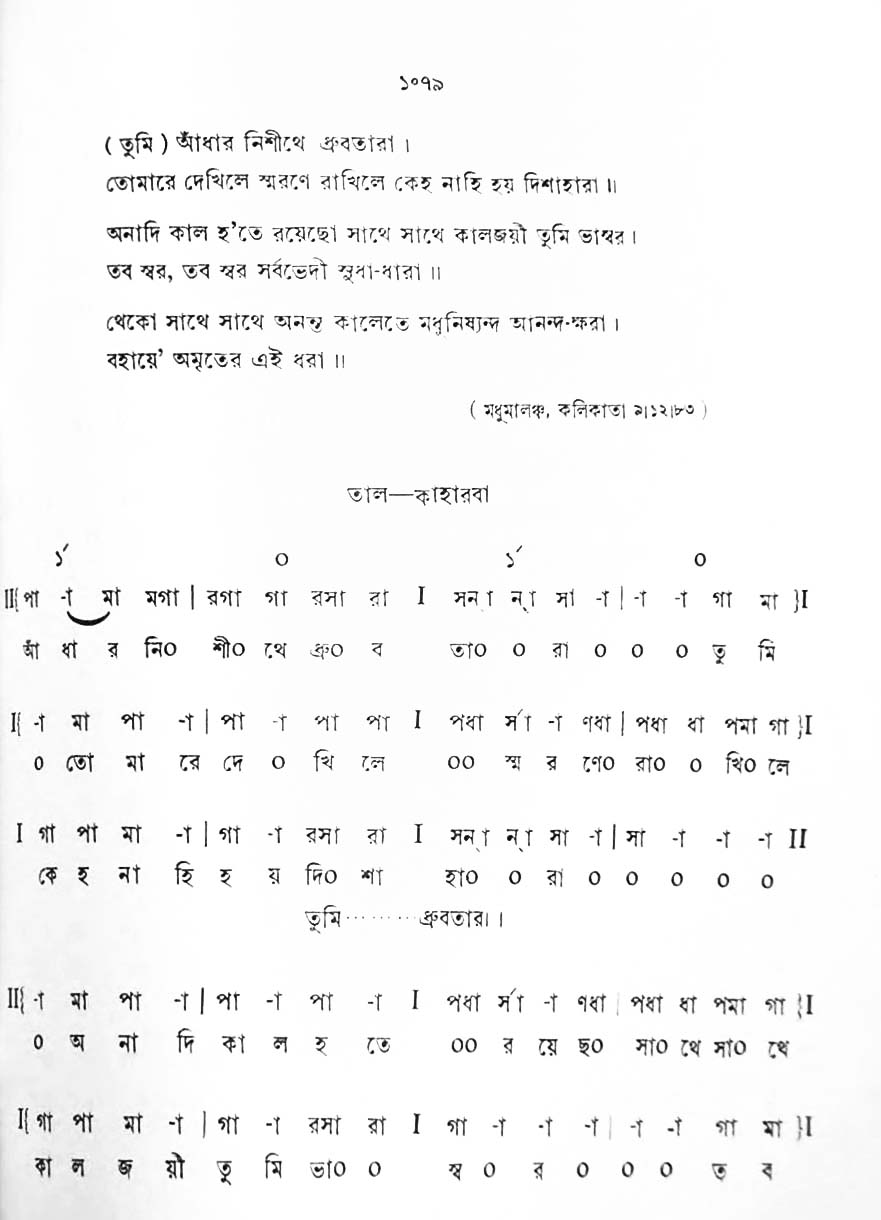 ১০৭৯
( তুমি ) আঁধার নিশীথে ধ্রুবতারা ।
তোমারে দেখিলে স্মরণে রাখিলে কেহ নাহি হয় দিশাহারা ॥
অনাদি কাল হ'তে রয়েছো সাথে সাথে কালজয়ী তুমি ভাস্বর ।
তব স্বর, তব স্বর সর্বভেদী সুধা-ধারা ॥
থেকো সাথে সাথে অনন্ত কালেতে মধুনিষ্যন্দ আনন্দ-ক্ষরা ।
বহায়ে' অমৃতের এই ধরা ॥
( মধুমালঞ্চ, কলিকাতা ৯।১২।৮৩ )
তাল—কাহারবা
১´ ০ ১´ ০
II{ পা -া মা মগা | রগা গা রসা রা I সন্া ন্া সা -া | -া -া গা মা }I
আঁ ধা র নি০ শী০ থে ধ্রু০ ব তা০ ০ রা ০ ০ ০ তু মি
I{ -া মা পা -া | পা -া পা পা I পধা র্সা -া ণধা | পধা ধা পমা গা }I
০ তো মা রে দে ০ খি লে ০০ স্ম র ণে০ রা০ ০ খি০ লে
I গা পা মা -া | গা -া রসা রা I সন্া ন্া সা -া | সা -া -া -া II
কে হ না হি হ য় দি০ শা হা০ ০ রা ০ ০ ০ ০ ০
তুমি ········· ধ্রুবতারা ।
II{ -া মা পা -া | পা -া পা -া I পধা র্সা -া ণধা | পধা ধা পমা গা }I
০ অ না দি কা ল হ তে ০০ র য়ে ছ০ সা০ থে সা০ থে
I{ গা পা মা -া | গা -া রসা রা I গা -া -া -া | -া -া গা মা }I
কা ল জ য়ী তু মি ভা০ ০ স্ব ০ র ০ ০ ০ ত ব